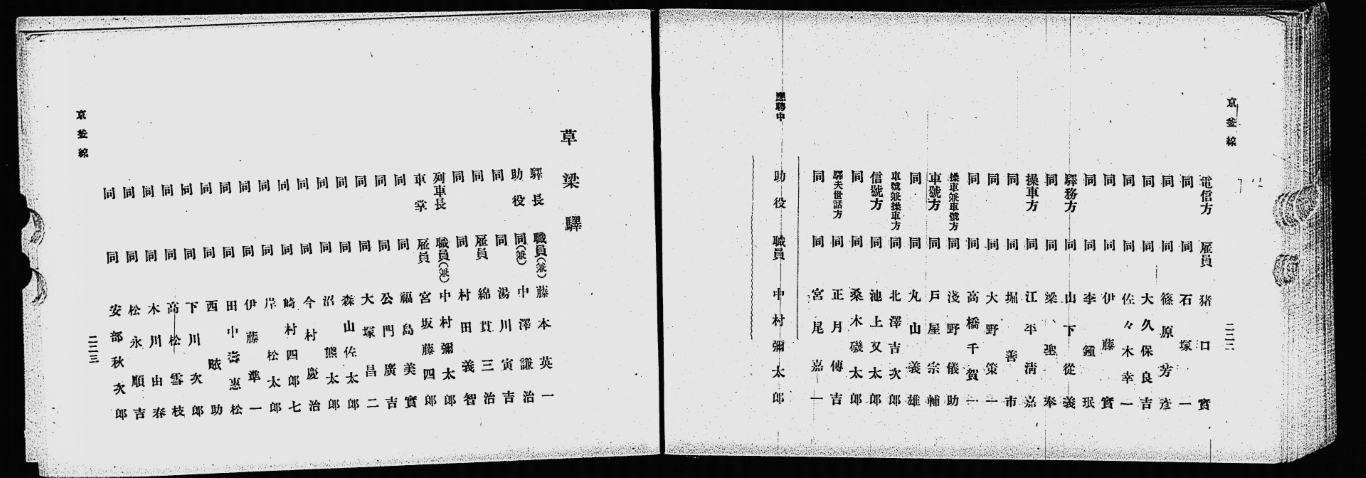 京釜線
電信方 雇員 猪口實
同 同 石塚一
同 同 篠原芳彦
同 同 大久保良吉
同 同 佐々木幸一
同 同 伊藤實
同 同 李鍾珉
驛務方 同 山下從義
同 同 梁聖奉
操車方 同 江平淸嘉
同 同 堀善市
同 同 大野策一
同 同 高橋千賀一
操車兼車號方 同 淺野儀助
車號方 同 戸屋宗輔
同 同 丸山義雄
車號兼操車方 同 北澤吉次郎
信號方 同 池上又太郎
同 同 桑木磯太郎
驛夫世話方 同 正月傳吉
同 同 宮尾嘉一
應聘中
助役 職員 中村彌太郎
二二二
草梁驛
驛長 職員(兼) 藤本英一
助役 同(兼) 中澤謙治
同 同 湯川寅吉
同 雇員 綿貫三治
同 同 村田義智
列車長 職員(兼) 中村彌太郎
車掌 雇員 宮坂藤四郎
同 同 福島美實
同 同 公門廣吉
同 同 大塚昌二
同 同 森山佐太郎
同 同 沼熊太郎
同 同 今村慶治
同 同 崎村四郎七
同 同 岸松太郎
同 同 伊藤準一
同 同 田中壽惠松
同 同 西助
同 同 下川次郎
同 同 高松雪枝
同 同 木川由春
同 同 松永順吉
同 同 安部秋次郎
京釜線
二二三